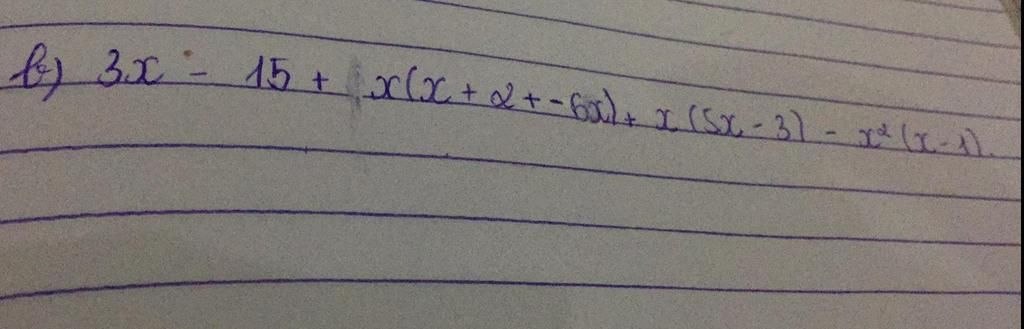 b) 3x - 15 + x(x + 2 + - 6x) + x (5x - 3) - x² (x - 1).